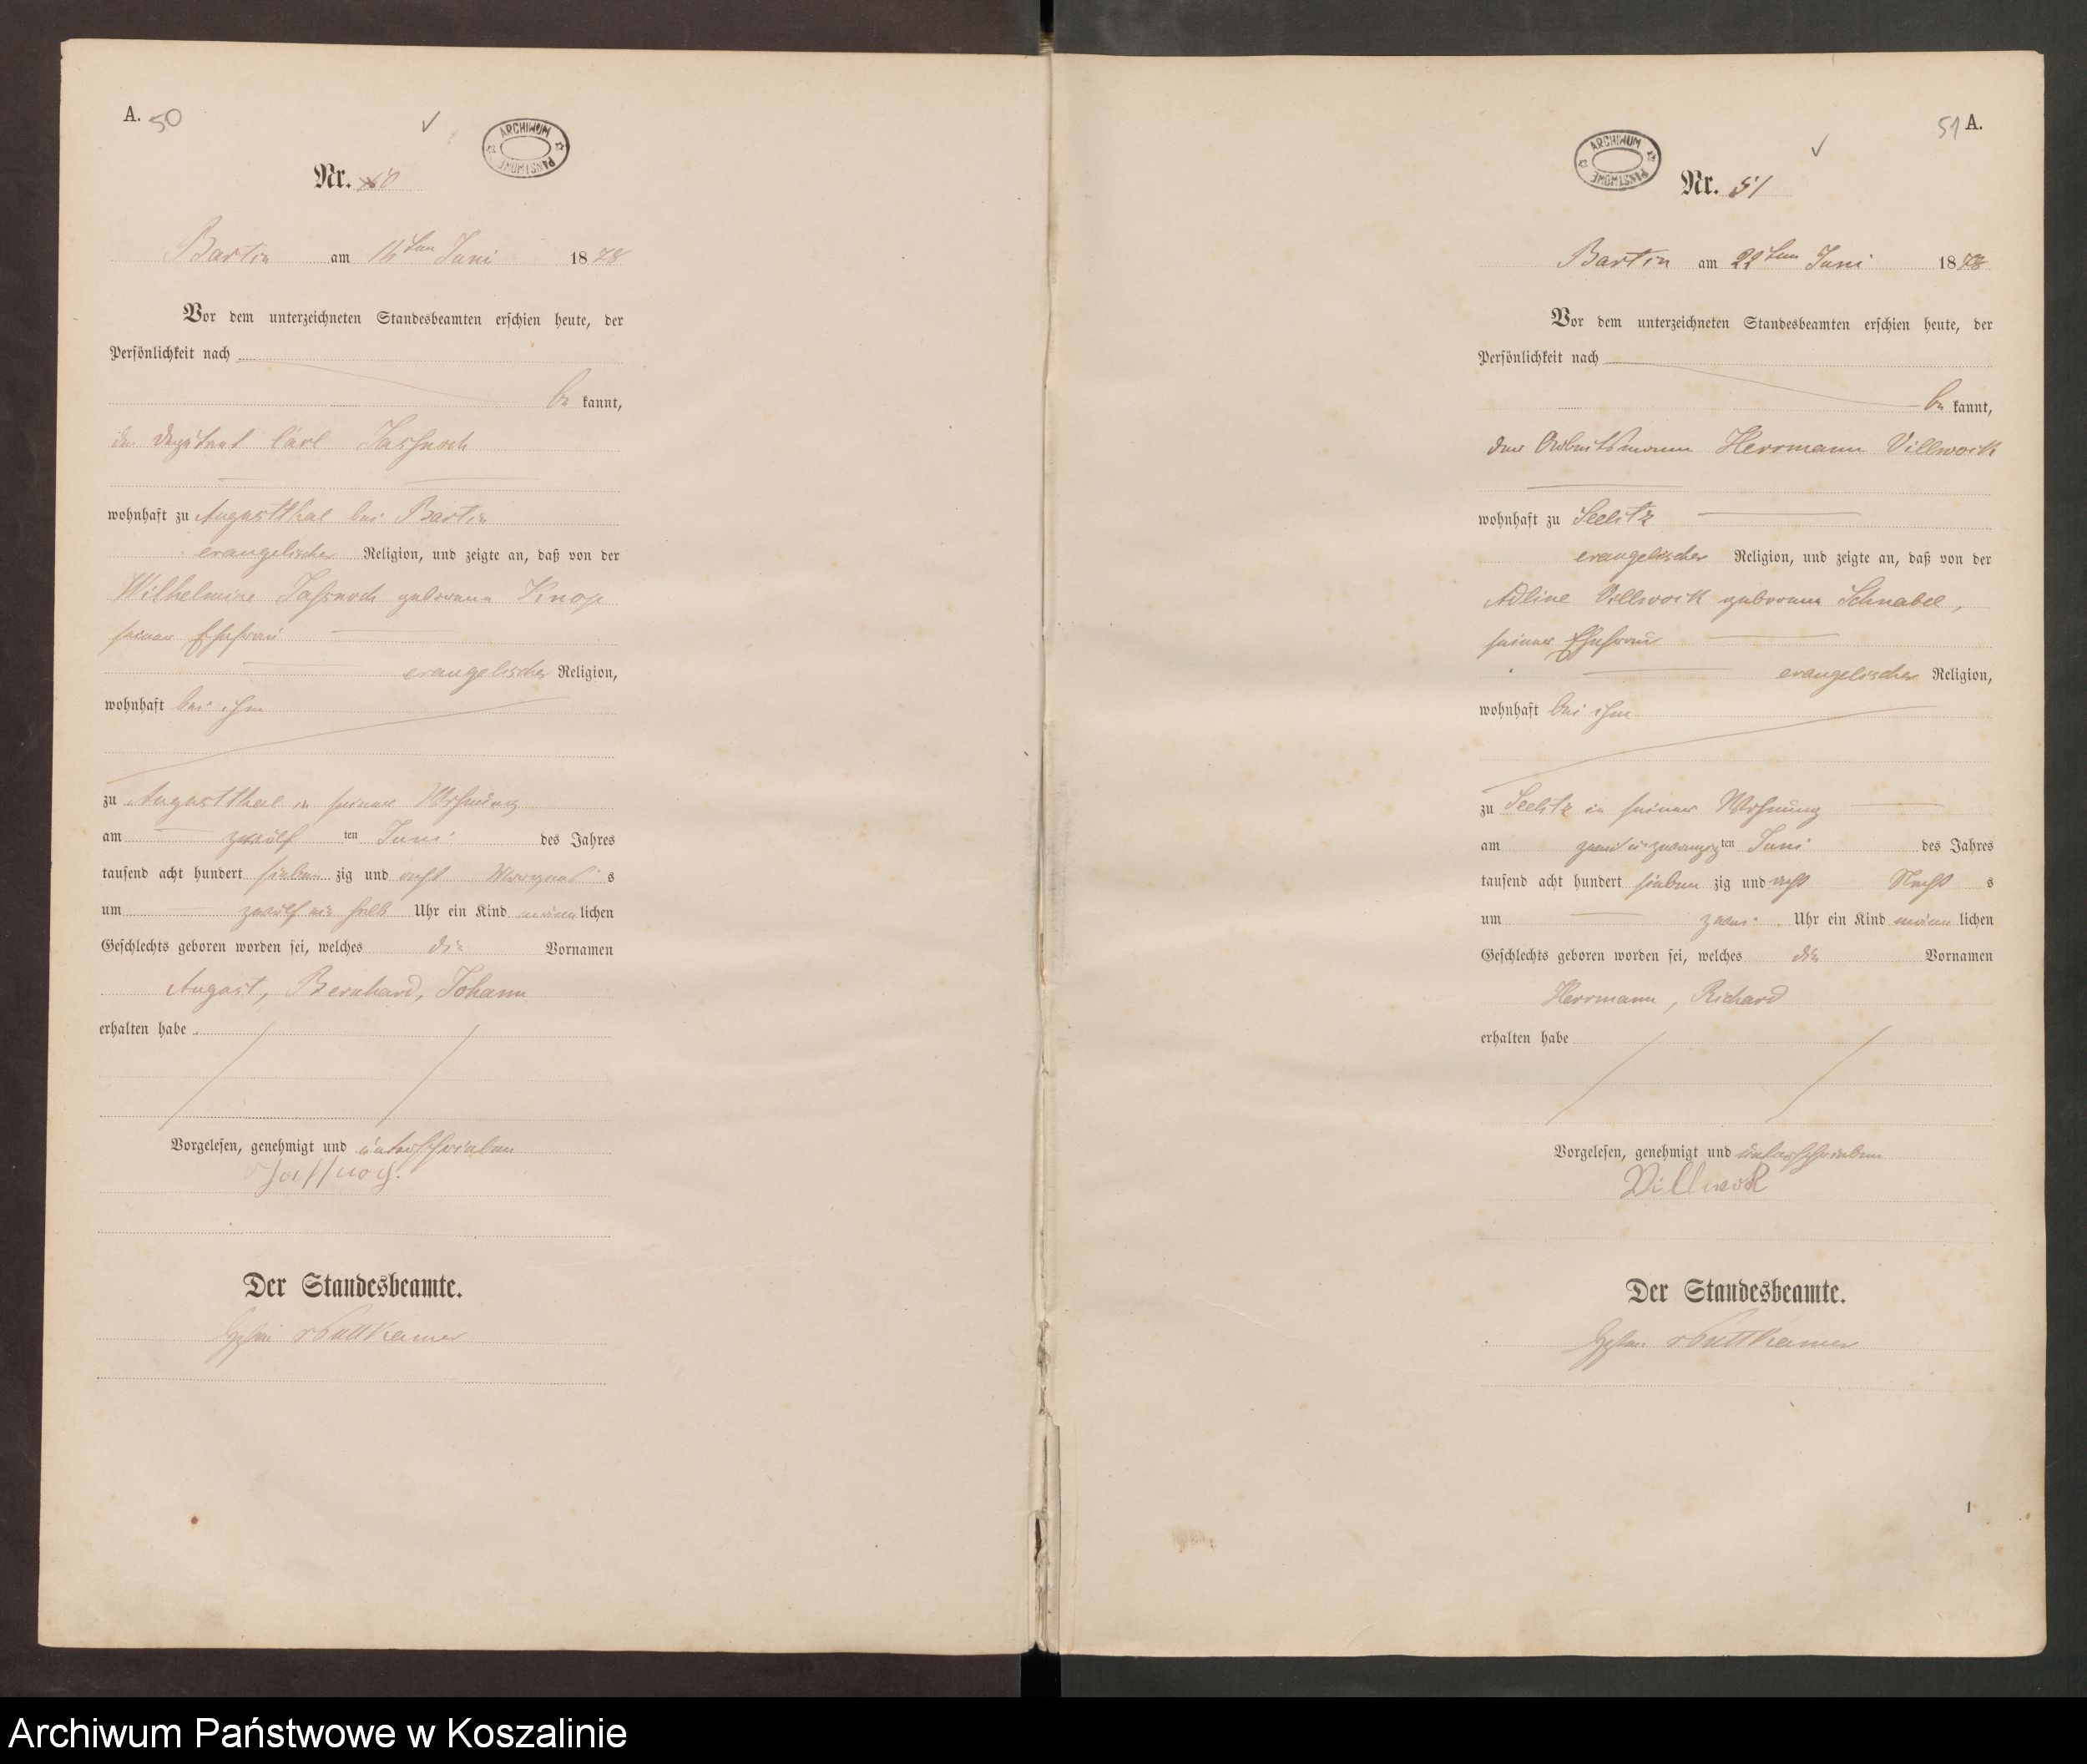 A. 50
ARCHIWUM PAŃSTWOWE
Nr. 50
Bartin am ten Juni 1878
Vor dem unterzeichneten Standesbeamten erschien heute, der
Persönlichkeit nach
be kannt,
Carl
wohnhaft zu Augustthal bei Bartin
evangelischer Religion, und zeigte an, daß von der
Wilhelmine geborene Knop
seiner Ehefrau
evangelischer Religion,
wohnhaft bei ihm
zu Augustthal in seiner Wohnung
am zwölf ten Juni des Jahres
tausend acht hundert sieben zig und acht Morgens s
um zwölf ein halb Uhr ein Kind männlichen
Geschlechts geboren worden sei, welches die Vornamen
August, Bernhard, Johann
erhalten habe
Vorgelesen, genehmigt und unterschrieben
Der Standesbeamte.
Puttkamer
51 A.
ARCHIWUM PAŃSTWOWE
Nr. 51
Bartin am 22ten Juni 1878
Vor dem unterzeichneten Standesbeamten erschien heute, der
Persönlichkeit nach
be kannt,
der Arbeitsmann Herrmann Villwock
wohnhaft zu Seelitz
evangelischer Religion, und zeigte an, daß von der
Adline Villwock geborene Schnabel,
seiner Ehefrau
evangelischer Religion,
wohnhaft bei ihm
zu Seelitz in seiner Wohnung
am zwei u zwanzigten Juni des Jahres
tausend acht hundert sieben zig und acht Nacht s
um zwei Uhr ein Kind männlichen
Geschlechts geboren worden sei, welches die Vornamen
Herrmann, Richard
erhalten habe
Vorgelesen, genehmigt und unterschrieben
Villwock
Der Standesbeamte.
Puttkamer
1
Archiwum Państwowe w Koszalinie